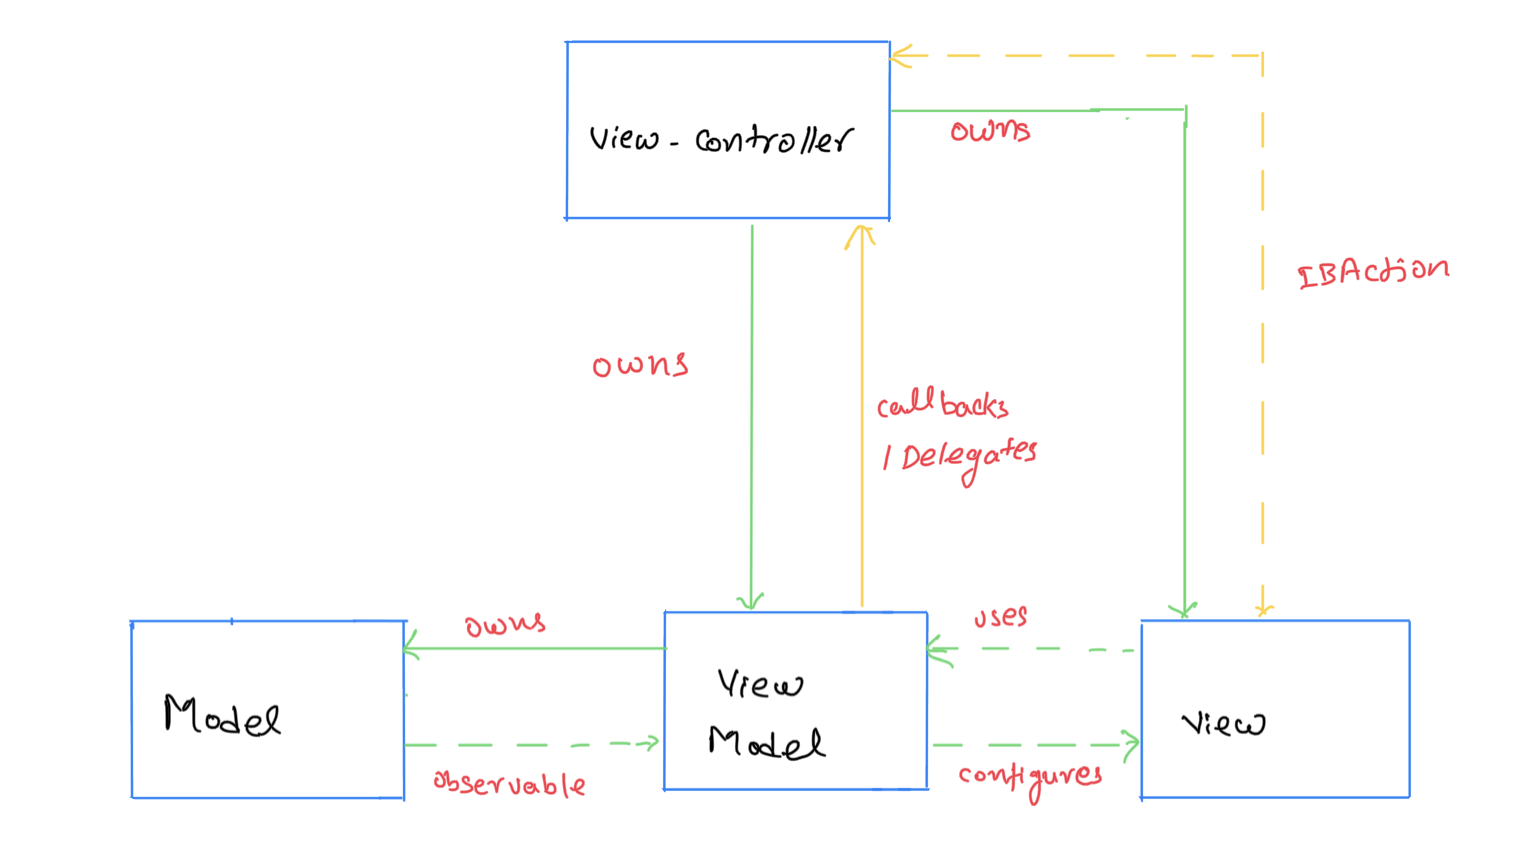 View - Controller
owns
IBAction
owns
callbacks
/ Delegates
owns
uses
Model
View
Model
View
observable
configures